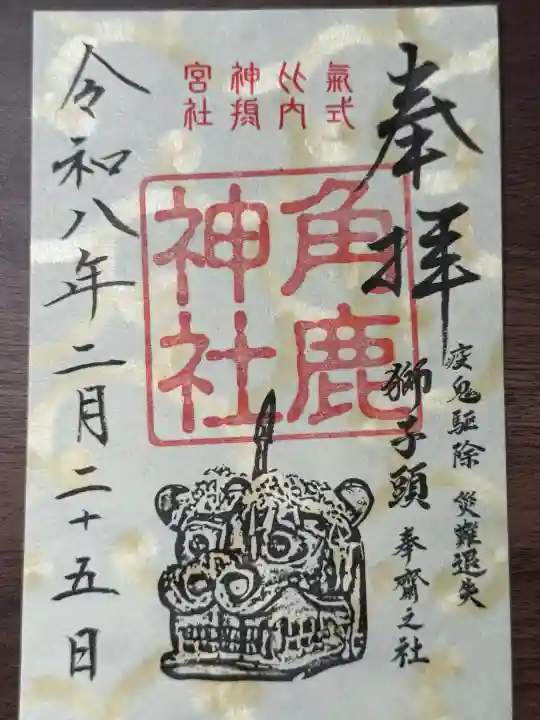 奉拝
式内
氣比神宮
摂社
角鹿
神社
疫鬼駆除 災難退失
獅子頭 奉齋之社
令和八年二月二十五日